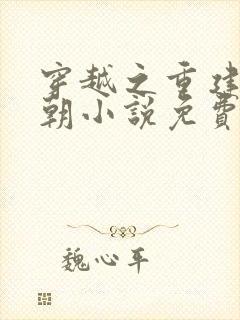 穿越之重建
朝小說免費
魏心平